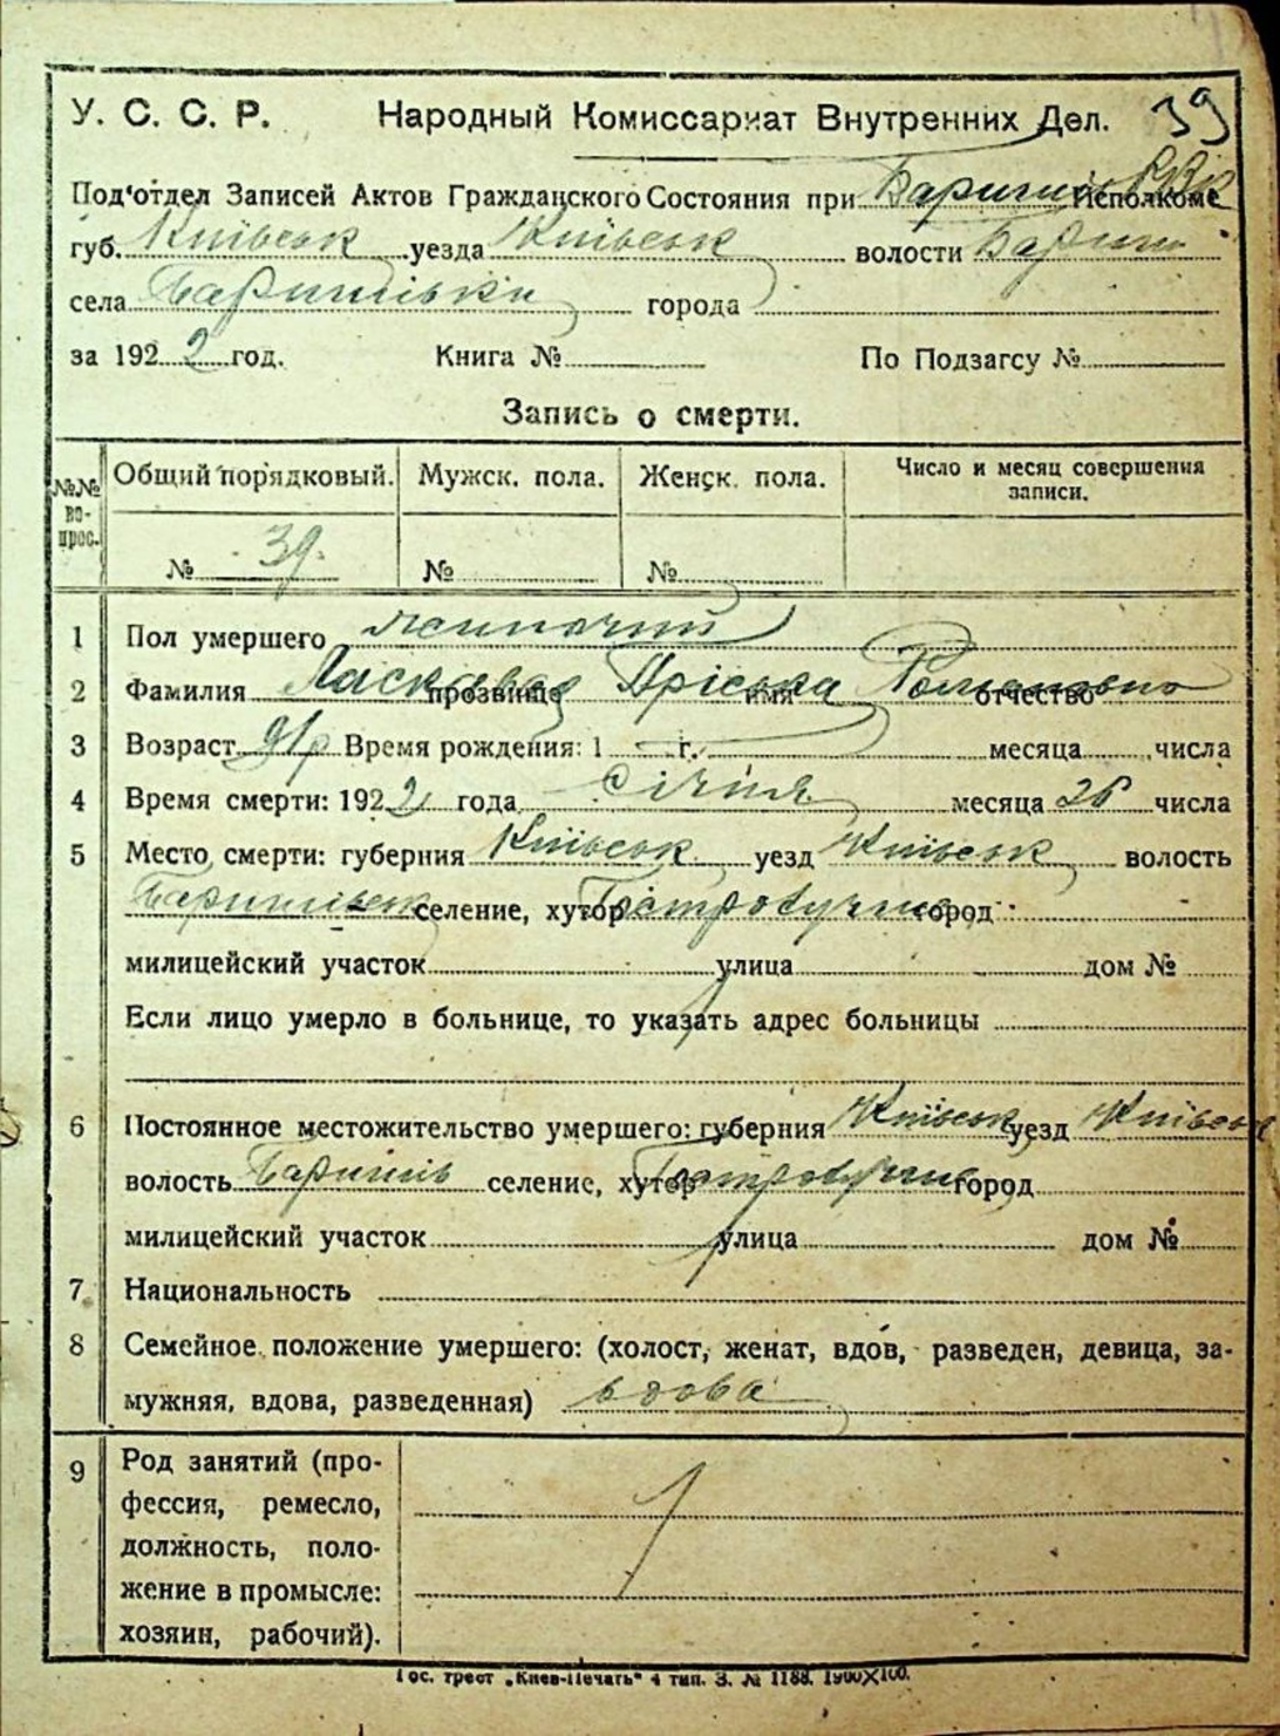 У. С. С. Р. Народный Комиссариат Внутренних Дел. 39
Под'отдел Записей Актов Гражданского Состояния при Исполкоме
губ. Київськ уезда Київськ волости Бариш
села Баришівки города
за 1922 год. Книга № По Подзагсу №
Запись о смерти.
№№ вопрос. Общий порядковый. Мужск. пола. Женск. пола. Число и месяц совершения
записи.
№ 39. № №
1 Пол умершего жиночий
2 Фамилия Ласкавая прозвище Пріська имя Романовна отчество
3 Возраст 91 р Время рождения: 1 г. месяца числа
4 Время смерти: 1922 года Січня месяца 26 числа
5 Место смерти: губерния Київськ уезд Київськ волость
Баришівськ селение, хутор город
милицейский участок улица дом №
Если лицо умерло в больнице, то указать адрес больницы
6 Постоянное местожительство умершего: губерния Київськ уезд Київськ
волость Баришів селение, хутор город
милицейский участок улица дом №
7 Национальность
8 Семейное положение умершего: (холост, женат, вдов, разведен, девица, за-
мужняя, вдова, разведенная) вдова
9 Род занятий (про-
фессия, ремесло,
должность, поло-
жение в промысле:
хозяин, рабочий).
Гос. трест „Киев-Печать" 4 тип. З. № 1188. 1900X100.